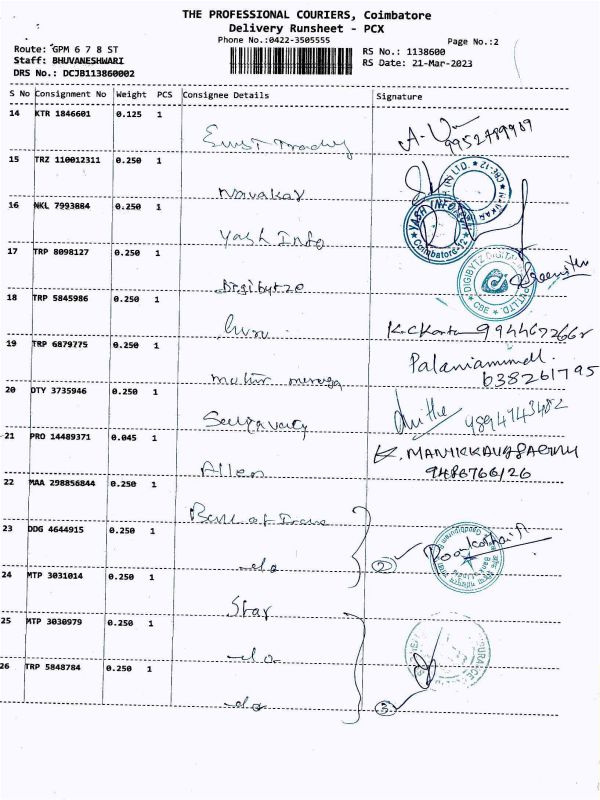 THE PROFESSIONAL COURIERS, Coimbatore
Delivery Runsheet - PCX
Phone No.:0422-3505555
Page No.:2
Route: GPM 6 7 8 ST
RS No.: 1138600
Staff: BHUVANESHWARI
RS Date: 21-Mar-2023
DRS No.: DCJB113860002
S No Consignment No Weight PCS Consignee Details Signature
14 KTR 1846601 0.125 1
9952789989
15 TRZ 110012311 0.250 1
Navakar
16 NKL 7993884 0.250 1
Yash Info
YASH INFOTECH
Coimbatore-12
17 TRP 8098127 0.250 1
Digibytze
DIGIBYTZ DIGITAL PVT LTD.
CBE
18 TRP 5845986 0.250 1
19 TRP 6879775 0.250 1
Palaniammal.
638261795
20 DTY 3735946 0.250 1
9894743402
21 PRO 14489371 0.045 1
K. MANIKKAVASAGAM
9486766126
Allen
22 MAA 298856844 0.250 1
23 DDG 4644915 0.250 1
-do
2
24 MTP 3031014 0.250 1
Star
25 MTP 3030979 0.250 1
-do
26 TRP 5848784 0.250 1
-do
3